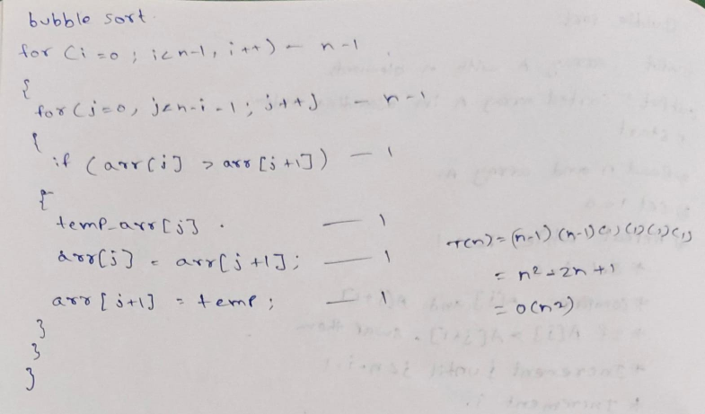 bubble sort.
for (i=0 ; i<n-1, i++) - n-1
{
for (j=0, j<n-i-1 ; j++) - n-1
{
if (arr[j] > arr[j+1]) - 1
{
temp=arr[j] . - 1
arr[j] = arr[j+1]; - 1
arr[j+1] = temp ; - 1
}
}
}
T(n) = (n-1) (n-1)(1)(1)(1)(1)
= n²-2n+1
= O(n²)